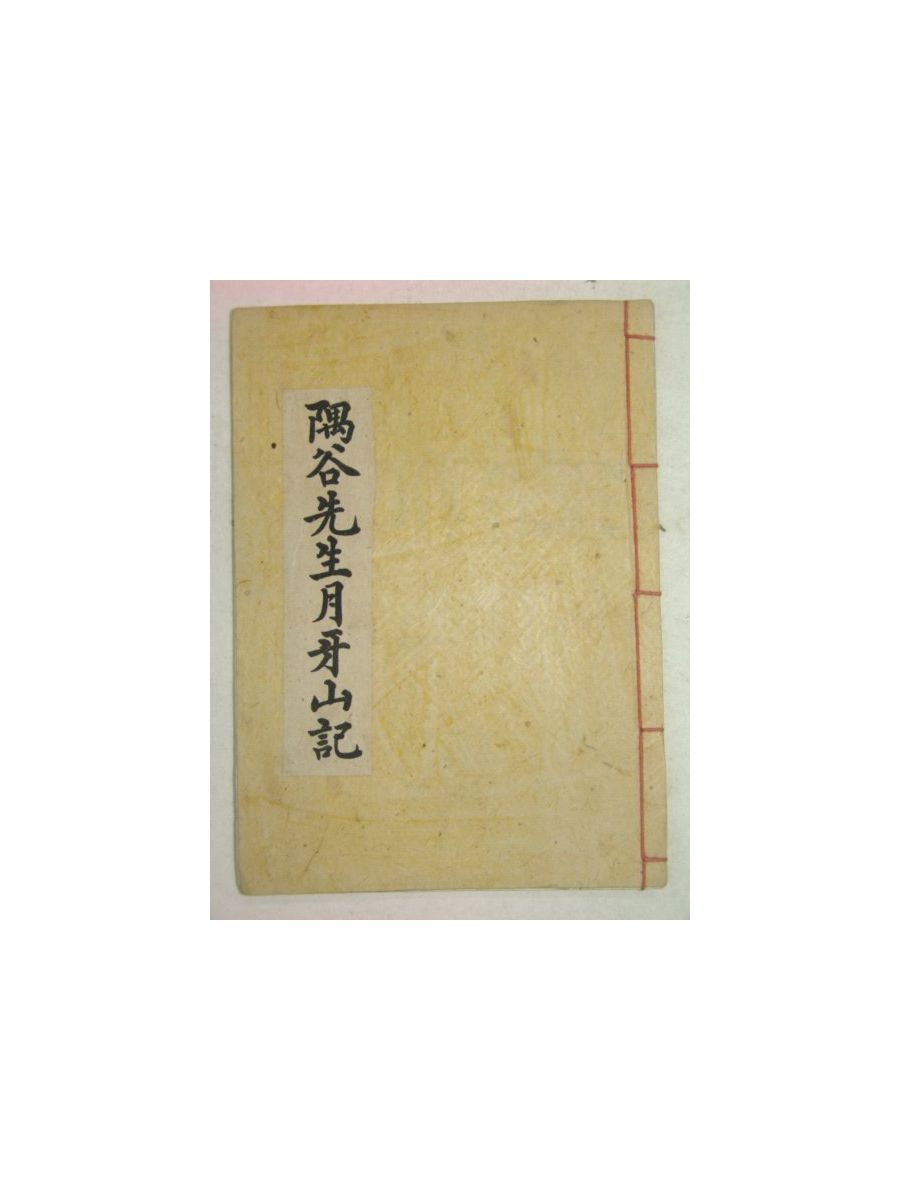 隅谷先生月牙山記